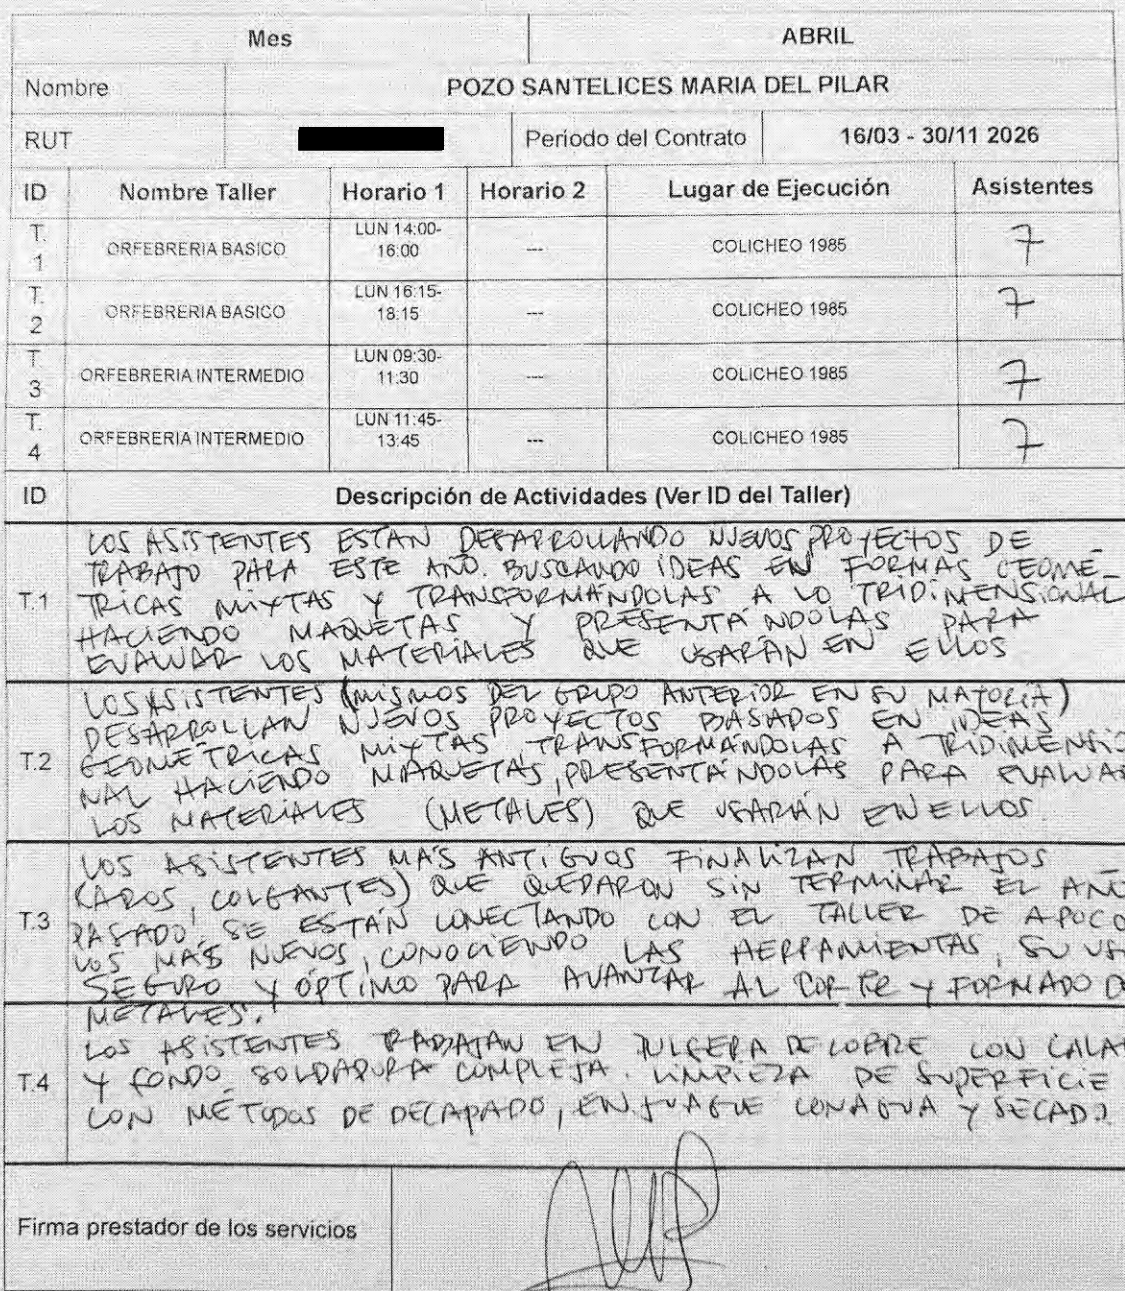 Mes ABRIL
Nombre POZO SANTELICES MARIA DEL PILAR
RUT Periodo del Contrato 16/03 - 30/11 2026
ID Nombre Taller Horario 1 Horario 2 Lugar de Ejecución Asistentes
T. 1 ORFEBRERIA BASICO LUN 14:00-16:00 --- COLICHEO 1985 7
T. 2 ORFEBRERIA BASICO LUN 16:15-18:15 --- COLICHEO 1985 7
T 3 ORFEBRERIA INTERMEDIO LUN 09:30-11:30 --- COLICHEO 1985 7
T. 4 ORFEBRERIA INTERMEDIO LUN 11:45-13:45 --- COLICHEO 1985 7
ID Descripción de Actividades (Ver ID del Taller)
T.1
LOS ASISTENTES ESTAN DESARROLLANDO NUEVOS PROYECTOS DE
TRABAJO PARA ESTE AÑO. BUSCANDO IDEAS EN FORMAS GEOMÉ-
TRICAS MIXTAS Y TRANSFORMÁNDOLAS A LO TRIDIMENSIONAL
HACIENDO MAQUETAS Y PRESENTÁNDOLAS PARA
EVALUAR LOS MATERIALES QUE USARÁN EN ELLOS
T.2
LOS ASISTENTES (MISMOS DEL GRUPO ANTERIOR EN SU MAYORÍA)
DESARROLLAN NUEVOS PROYECTOS BASADOS EN IDEAS
GEOMÉTRICAS MIXTAS TRANSFORMÁNDOLAS A TRIDIMENSIO
NAL HACIENDO MAQUETAS, PRESENTÁNDOLAS PARA EVALUAR
LOS MATERIALES (METALES) QUE USARÁN EN ELLOS
T.3
LOS ASISTENTES MÁS ANTIGUOS FINALIZAN TRABAJOS
(AROS, COLGANTES) QUE QUEDARON SIN TERMINAR EL AÑO
PASADO, SE ESTÁN CONECTANDO CON EL TALLER DE A POCO
LOS MÁS NUEVOS, CONOCIENDO LAS HERRAMIENTAS, SU US
SEGURO Y ÓPTIMO PARA AVANZAR AL CORTE Y FORMADO D
METALES.
T.4
LOS ASISTENTES TRABAJAN EN PULSERA DE COBRE CON CALA
Y FONDO, SOLDADURA COMPLEJA. LIMPIEZA DE SUPERFICIE
CON MÉTODOS DE DECAPADO, ENJUAGUE CON AGUA Y SECADO.
Firma prestador de los servicios